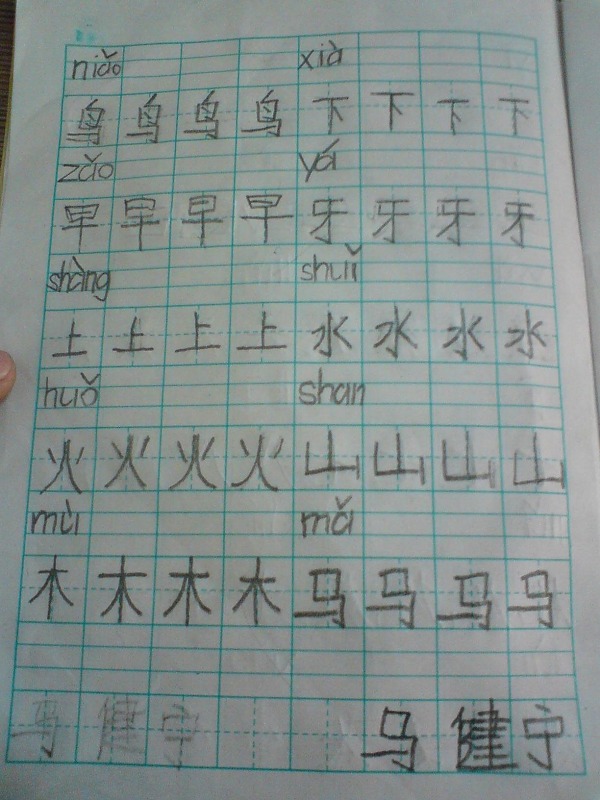 niǎo xià
鸟 鸟 鸟 鸟 下 下 下 下
zǎo yá
早 早 早 早 牙 牙 牙 牙
shàng shuǐ
上 上 上 上 水 水 水 水
huǒ shan
火 火 火 火 山 山 山 山
mù mǎ
木 木 木 木 马 马 马 马
马 健 宁 马 健 宁